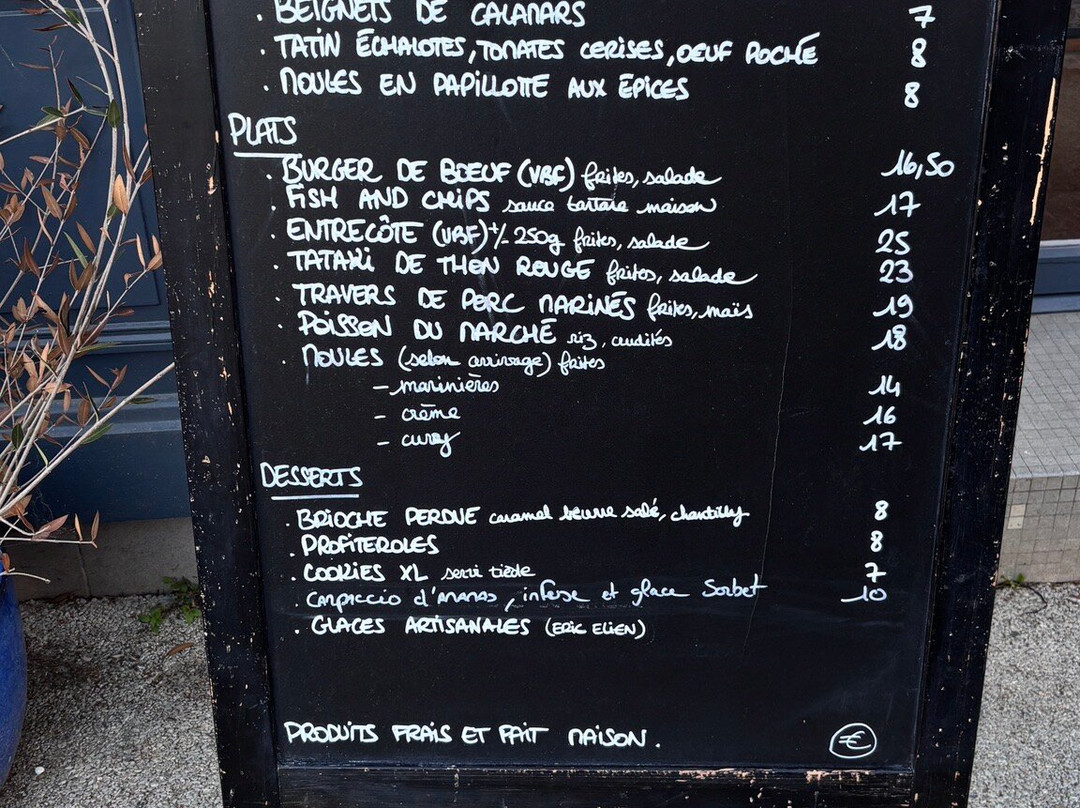 . BEIGNETS DE CALAMARS 7
. TATIN ÉCHALOTES, TOMATES CERISES, OEUF POCHÉ 8
. MOULES EN PAPILLOTTE AUX ÉPICES 8
PLATS
. BURGER DE BOEUF (VBF) frites, salade 16,50
. FISH AND CHIPS sauce tartare maison 17
. ENTRECÔTE (VBF) +/- 250g frites, salade 25
. TATAKI DE THON ROUGE frites, salade 23
. TRAVERS DE PORC MARINÉS frites, maïs 19
. POISSON DU MARCHÉ riz, crudités 18
. MOULES (selon arrivage) frites
- marinières 14
- crème 16
- curry 17
DESSERTS
. BRIOCHE PERDUE caramel beurre salé, chantilly 8
. PROFITEROLES 8
. COOKIES XL servi tiède 7
. Carpaccio d'ananas, et glace Sorbet 10
. GLACES ARTISANALES (ERIC ELIEN)
PRODUITS FRAIS ET FAIT MAISON. €